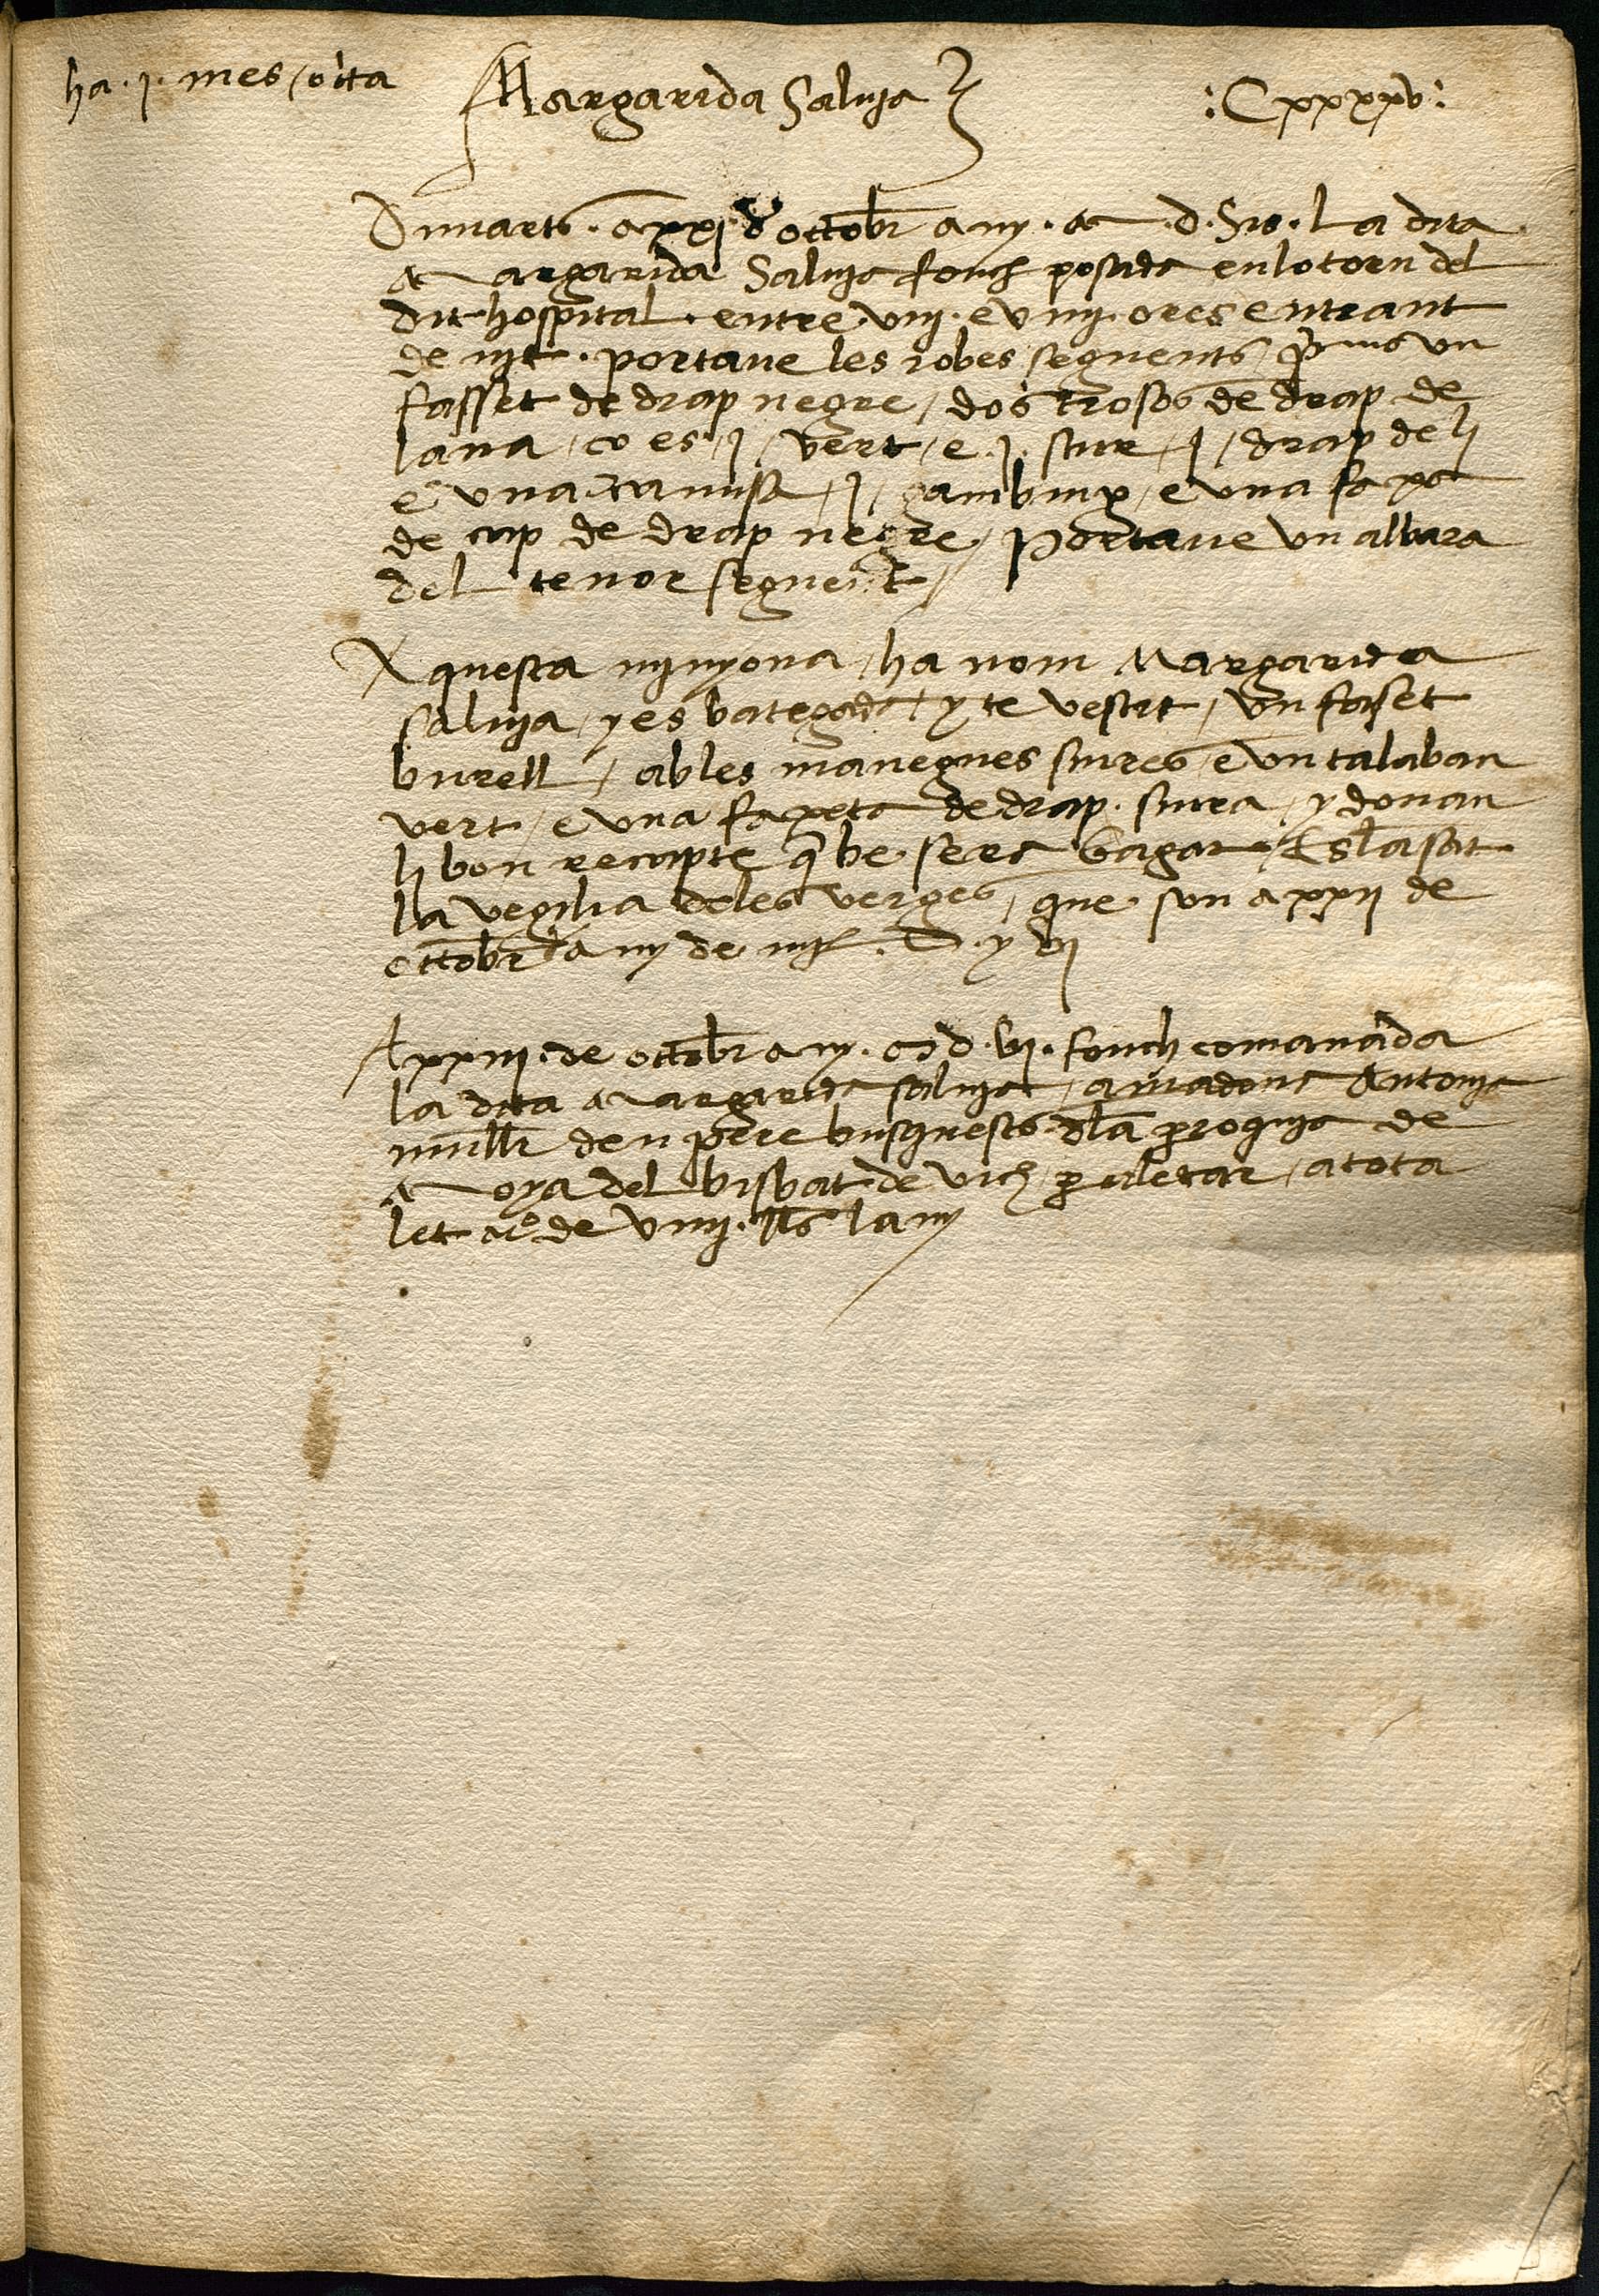 ha .j. mes / o ɛ̃ta
Margarida Saluja
:Cxxxxv:
Dimarts . a xxj de octobr any . M . d . Sis . La dita
Margarida Saluja fonch posada en lo torn del
dit hospital . entre . viij . e viiij . ores entrant
de nit . portaue les robes seguents / primo vn
fasset de drap negre / dos trosos de drap de
lana / ço es / j / vert / e . j . scur / j / drap de li
e vna camisa / j / gambuix / e vna faxa
de cap de drap negre / Portaue vn albara
del tenor seguent /
Aquesta ninyona / ha nom Margarida
saluja / y es bategada / y te vestit / vn faset
burell / ab les manegues scures / e vn talaban
vert / e vna faxeta de drap . scura / y donau
li bon recapte q be sera pagat / Es la sat
la vegilia de les verges / que son a xxij de
octobr any de mil . D . y vj
A xxiij . de octobr any . M d . vj . fonch comanada
la dita Margarida saluja / a madona Antonja
mull̃r den pere busquests . dl̃a parroquja de
Moya del bisbat de vich / p̱ aletar / a tota
let ao de viiij . ll̃s lany